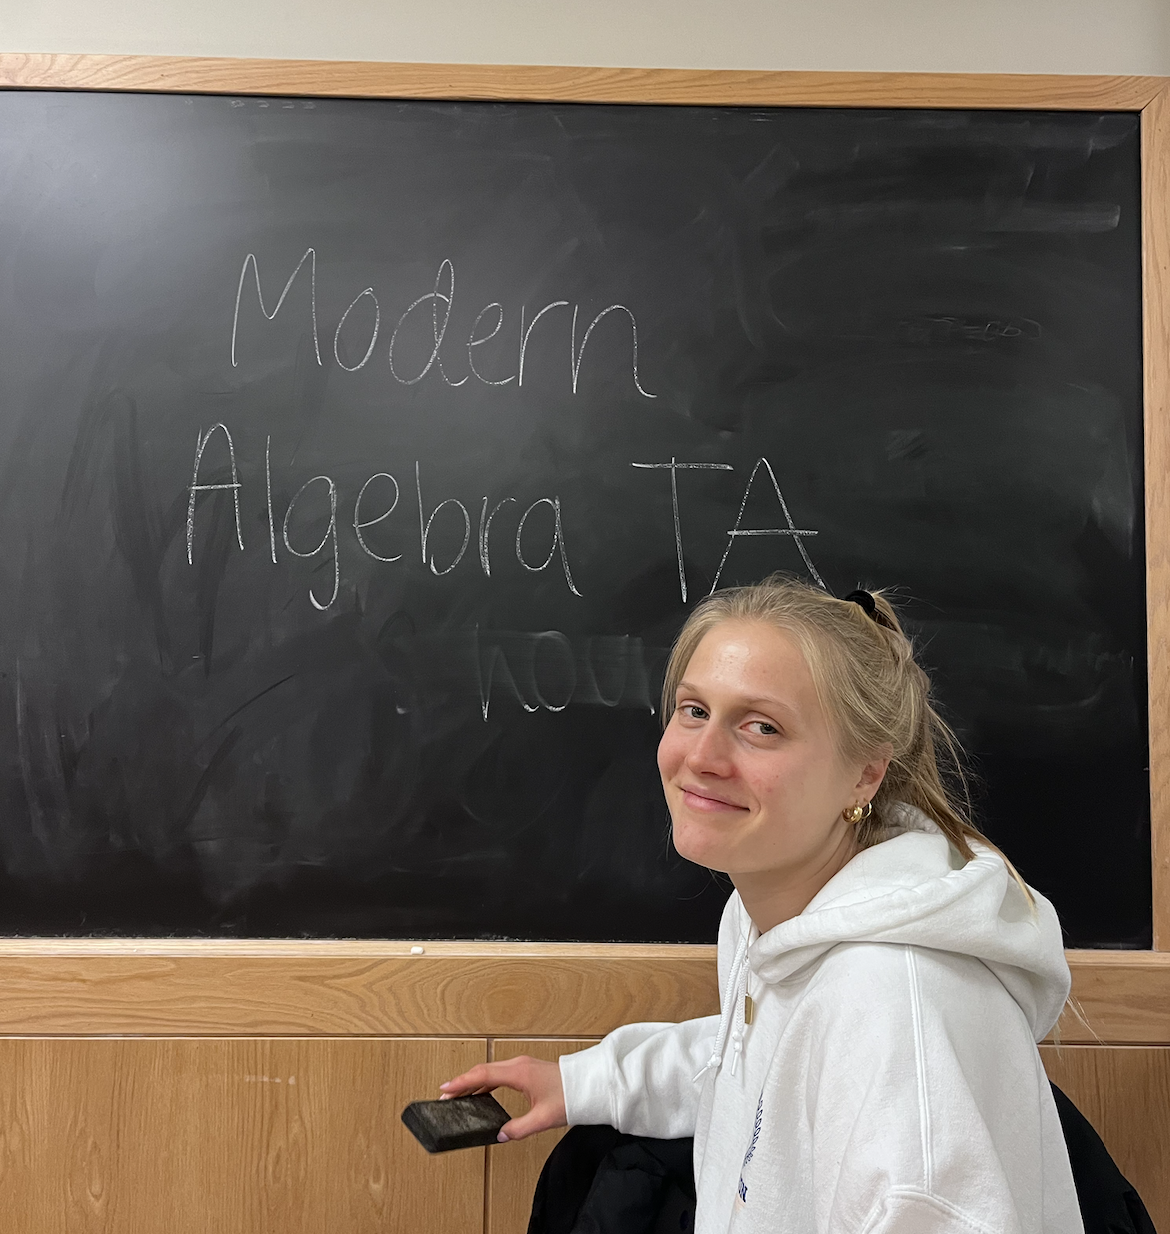 Modern
Algebra TA
hou